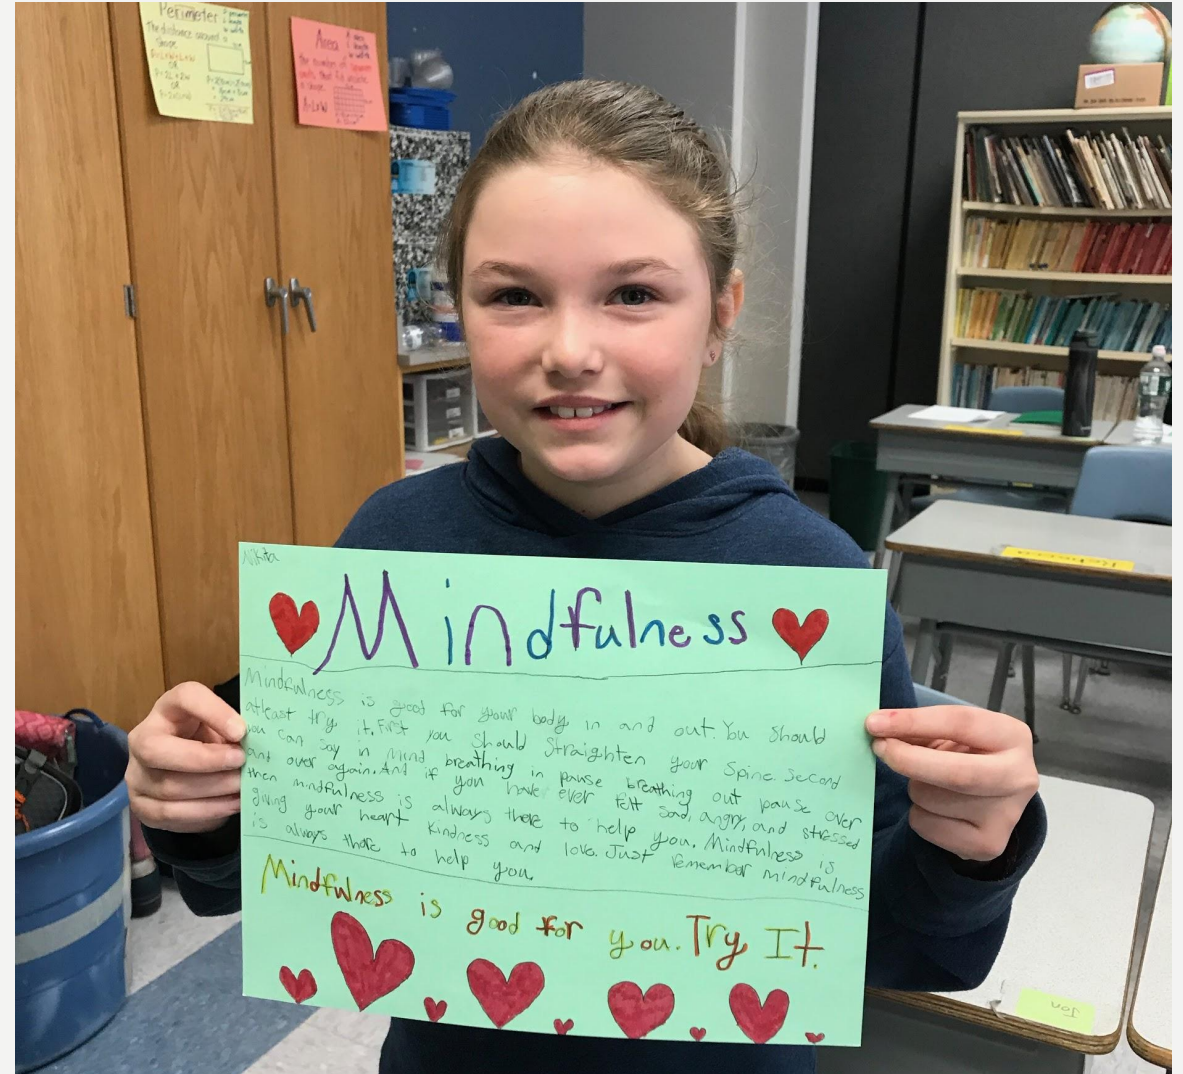 Perimeter
The distance around a
shape
OR
OR
Area
the number of square
units that fit inside
a shape.
A=LxW
Nikita
Mindfulness
Mindfulness is good for your body in and out. You should
atleast try it. First you should straighten your spine. Second
you can say in mind breathing in pause breathing out pause over
and over again. And if you have ever felt sad, angry, and stressed
then mindfulness is always there to help you. Mindfulness is
giving your heart kindness and love. Just remember mindfulness
is always there to help you
Mindfulness is good for you. Try It.
Jon